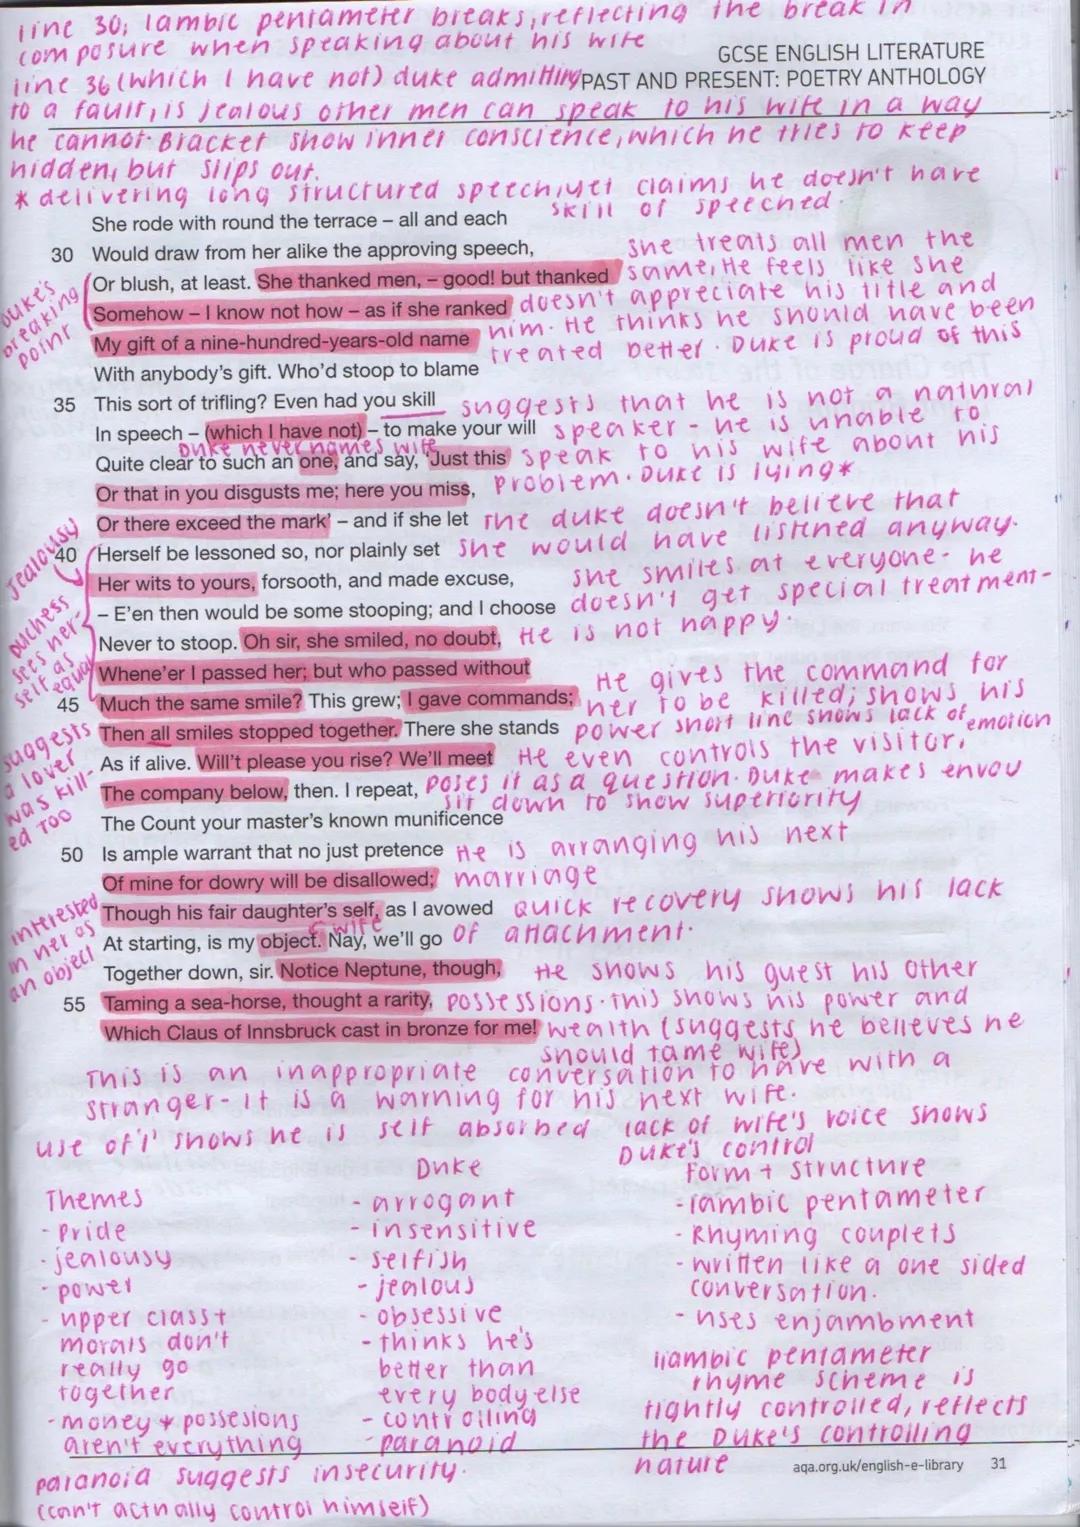 line 30; Iambic pentameter breaks, reflecting the break in
composure when speaking about his wife
GCSE ENGLISH LITERATURE
line 36 (which I have not) duke admitting
PAST AND PRESENT: POETRY ANTHOLOGY
to a fault, is jealous other men can speak to his wife in a way
he cannot. Bracket show inner conscience, which he tries to keep
hidden, but slips out.
* delivering long structured speech, yet claims he doesn't have
skill of speeched.
She rode with round the terrace – all and each
30 Would draw from her alike the approving speech,
Or blush, at least. She thanked men, – good! but thanked
Somehow – I know not how – as if she ranked
My gift of a nine-hundred-years-old name
With anybody's gift. Who'd stoop to blame
35 This sort of trifling? Even had you skill
In speech – (which I have not) – to make your will
Quite clear to such an one, and say, 'Just this
Or that in you disgusts me; here you miss,
Or there exceed the mark' – and if she let
40 Herself be lessoned so, nor plainly set
Her wits to yours, forsooth, and made excuse,
– E'en then would be some stooping; and I choose
Never to stoop. Oh sir, she smiled, no doubt,
Whene'er I passed her; but who passed without
45 Much the same smile? This grew; I gave commands;
Then all smiles stopped together. There she stands
As if alive. Will't please you rise? We'll meet
The company below, then. I repeat,
The Count your master's known munificence
50 Is ample warrant that no just pretence
Of mine for dowry will be disallowed;
Though his fair daughter's self, as I avowed
At starting, is my object. Nay, we'll go
Together down, sir. Notice Neptune, though,
55 Taming a sea-horse, thought a rarity,
Which Claus of Innsbruck cast in bronze for me!
Duke's
breaking
point
Jealousy
Duchess
sees her-
self as
equal
suggests
a lover
was kill-
ed too
interested
in her as
an object
she treats all men the
same, He feels like she
doesn't appreciate his title and
him. He thinks he should have been
treated better. Duke is proud of this
suggests that he is not a natural
speaker - he is unable to
Duke never names wife
speak to his wife about his
problem. Duke is lying*
The duke doesn't believe that
she would have listned anyway.
she smiles at everyone- he
doesn't get special treatment-
He is not happy.
He gives the command for
her to be killed; shows his
power short line shows lack of emotion
He even controls the visitor,
poses it as a question. Duke makes envoy
sit down to show superiority
He is arranging his next
marriage
Quick recovery shows his lack
of attachment.
wife
He shows his guest his other
possessions. this shows his power and
wealth (suggests he believes he
should tame wife)
This is an inappropriate conversation to have with a
stranger- it is a warning for his next wife.
use of 'I' shows he is self absorbed
lack of wife's voice shows
Duke's control
Themes
- Pride
- jealousy
- power
- upper class +
morals don't
really go
together
- money + possesions
aren't everything
Duke
- arrogant
- insensitive
- selfish
- jealous
- obsessive
- thinks he's
better than
every body else
- controlling
- paranoid
Form + structure
- Iambic pentameter
- Rhyming couplets
- written like a one sided
conversation.
- uses enjambment
Iiambic pentameter
rhyme scheme is
tightly controlled, reflects
the Duke's controlling
nature
paranoia suggests insecurity.
(can't actually control himself)
aqa.org.uk/english-e-library 31